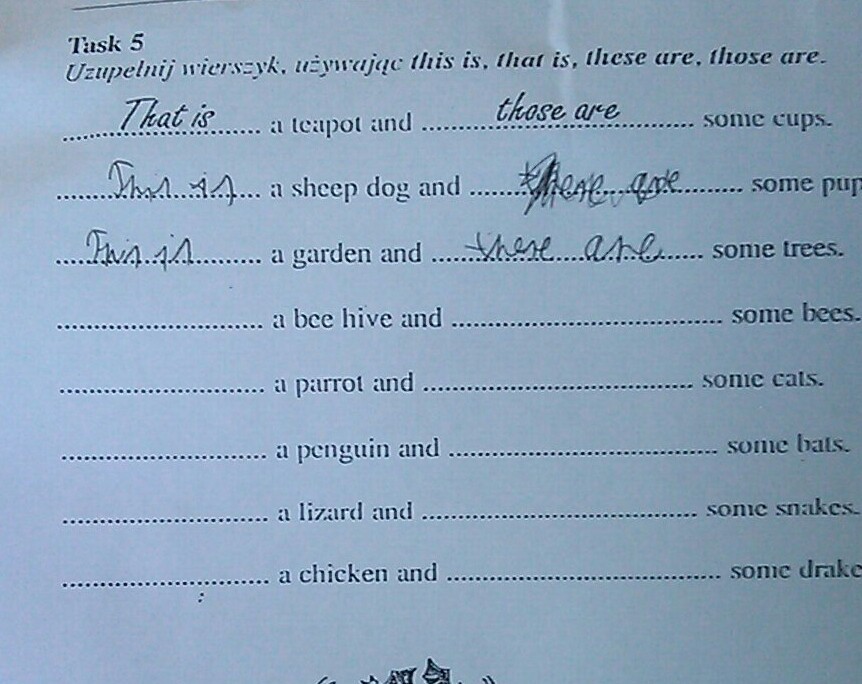 Task 5
Uzupełnij wierszyk, używając this is, that is, these are, those are.
That is a teapot and those are some cups.
This is a sheep dog and these are some pup
This is a garden and these are some trees.
.............................. a bee hive and ........................................ some bees.
.............................. a parrot and ........................................ some cats.
.............................. a penguin and ........................................ some bats.
.............................. a lizard and ........................................ some snakes.
.............................. a chicken and ........................................ some drake